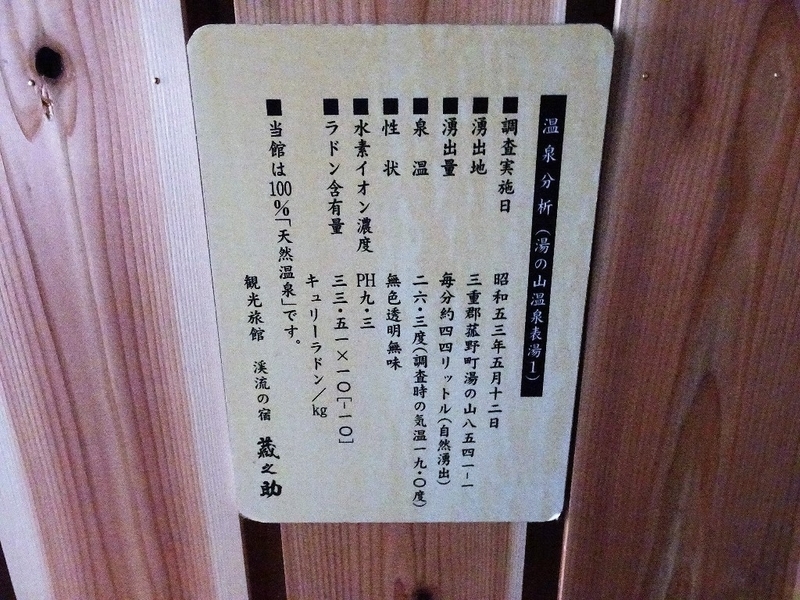 温泉分析(湯の山温泉表湯1)
■調査実施日 昭和五三年五月十二日
■湧出地 三重郡菰野町湯の山八五四一-一
■湧出量 毎分約四四リットル(自然湧出)
■泉 温 二六・三度(調査時の気温一九・〇度)
■性 状 無色透明無味
■水素イオン濃度 PH九・三
■ラドン含有量 三三・五一×一〇[-一〇]
キュリーラドン/kg
■当館は100%「天然温泉」です。
観光旅館 渓流の宿 蔵之助